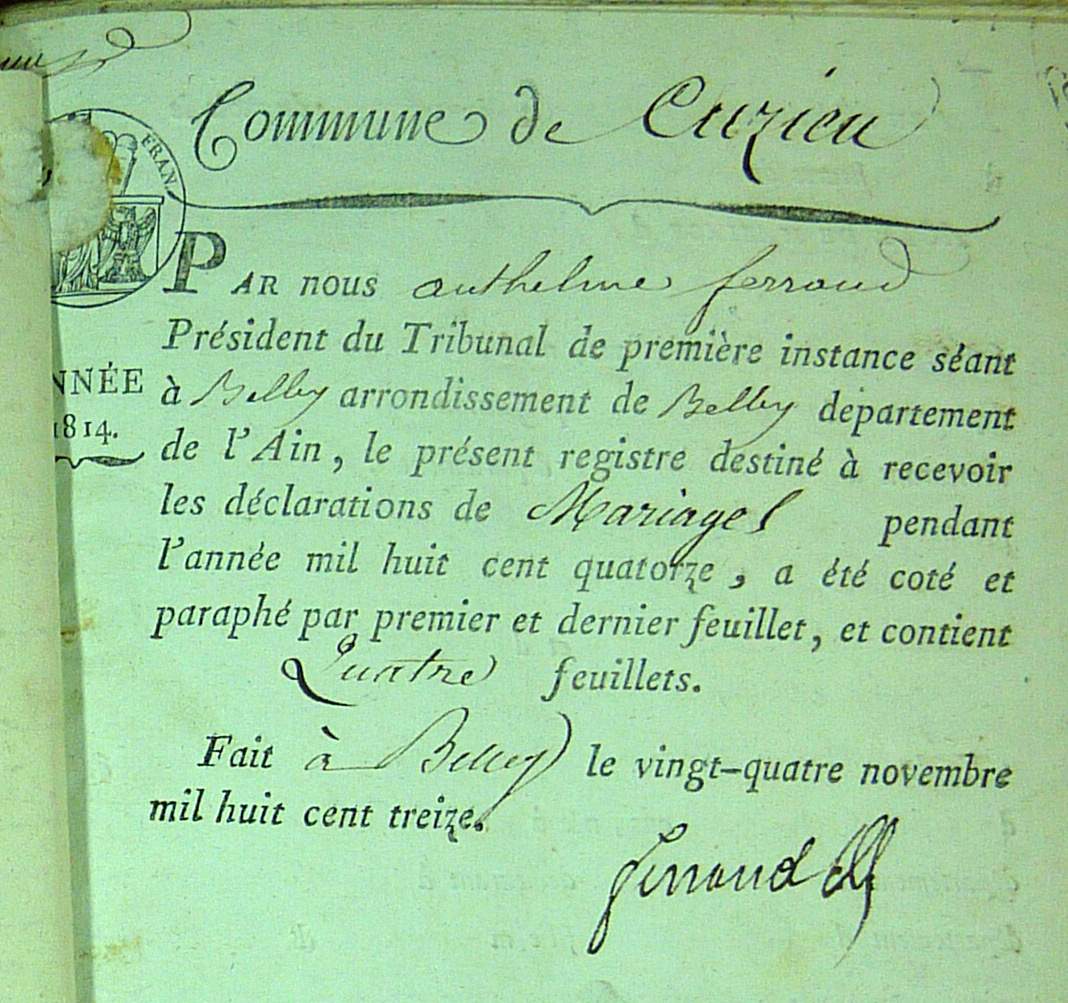 Commune de Cuzieu
FRAN.
PAR nous anthelme ferrand
Président du Tribunal de première instance séant
NNÉE
1814.
à Belley arrondissement de Belley département
de l'Ain, le présent registre destiné à recevoir
les déclarations de Mariages pendant
l'année mil huit cent quatorze, a été coté et
paraphé par premier et dernier feuillet, et contient
Quatre feuillets.
Fait à Belley le vingt-quatre novembre
mil huit cent treize.
ferrand